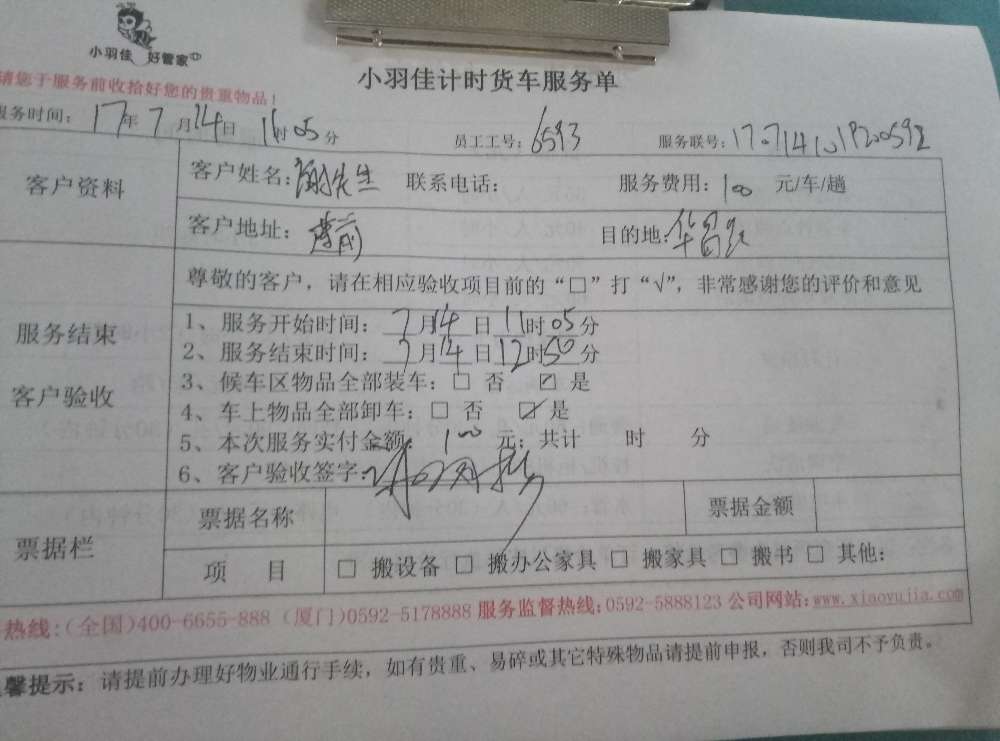 小羽佳 好管家
小羽佳计时货车服务单
请您于服务前收拾好您的贵重物品!
服务时间: 17年7月14日 11时05分 员工工号: 6593 服务联号: 170714101P200592
客户资料 客户姓名: 谢先生 联系电话: 服务费用: 100 元/车/趟
客户地址: 莲前 目的地: 华昌路
尊敬的客户,请在相应验收项目前的“□”打“√”,非常感谢您的评价和意见
服务结束
客户验收
1、服务开始时间: 7月14日11时05分
2、服务结束时间: 7月14日12时50分
3、候车区物品全部装车: □ 否 ☑ 是
4、车上物品全部卸车: □ 否 ☑ 是
5、本次服务实付金额: 100 元; 共计 时 分
6、客户验收签字:
票据栏 票据名称 票据金额
项 目 □ 搬设备 □ 搬办公家具 □ 搬家具 □ 搬书 □ 其他:
热线:(全国)400-6655-888 (厦门)0592-5178888 服务监督热线:0592-5888123 公司网站:www.xiaoyujia.com
馨提示: 请提前办理好物业通行手续,如有贵重、易碎或其它特殊物品请提前申报,否则我司不予负责。